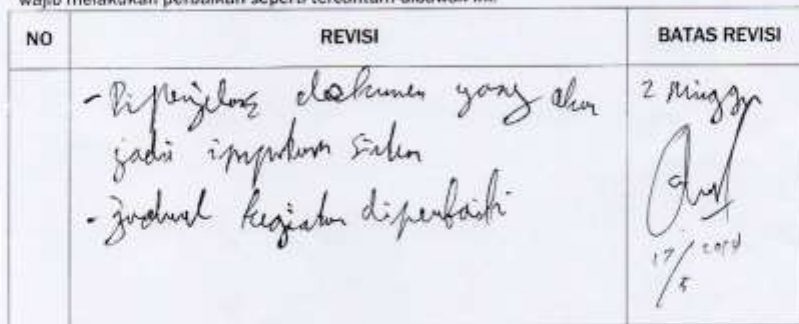 wajib melakukan perbaikan seperti tercantum dibawah ini:
NO REVISI BATAS REVISI
- Diperjelas dokumen yang akan 2 Minggu
jadi
- Jadwal kegiatan diperbaiki
17/5 2014